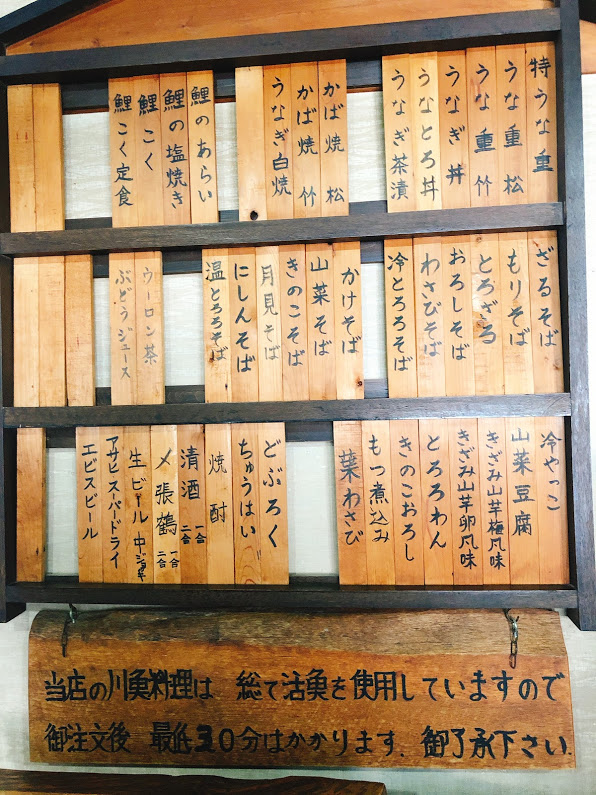 特うな重
うな重 松
うな重 竹
うなぎ丼
うなとろ丼
うなぎ茶漬
かば焼 松
かば焼 竹
うなぎ白焼
鯉のあらい
鯉の塩焼き
鯉こく
鯉こく定食
ざるそば
もりそば
とろざる
おろしそば
わさびそば
冷とろろそば
かけそば
山菜そば
きのこそば
月見そば
にしんそば
温とろろそば
ウーロン茶
ぶどうジュース
冷やっこ
山菜豆腐
きざみ山芋梅風味
きざみ山芋卵風味
とろろわん
きのこおろし
もつ煮込み
葉わさび
どぶろく
ちゅうはい
焼酎
清酒 一合 二合
〆張鶴 一合 二合
生ビール 中ジョッキ
アサヒスーパードライ
エビスビール
当店の川魚料理は 総て活魚を使用していますので
御注文後 最低30分はかかります、御了承下さい.